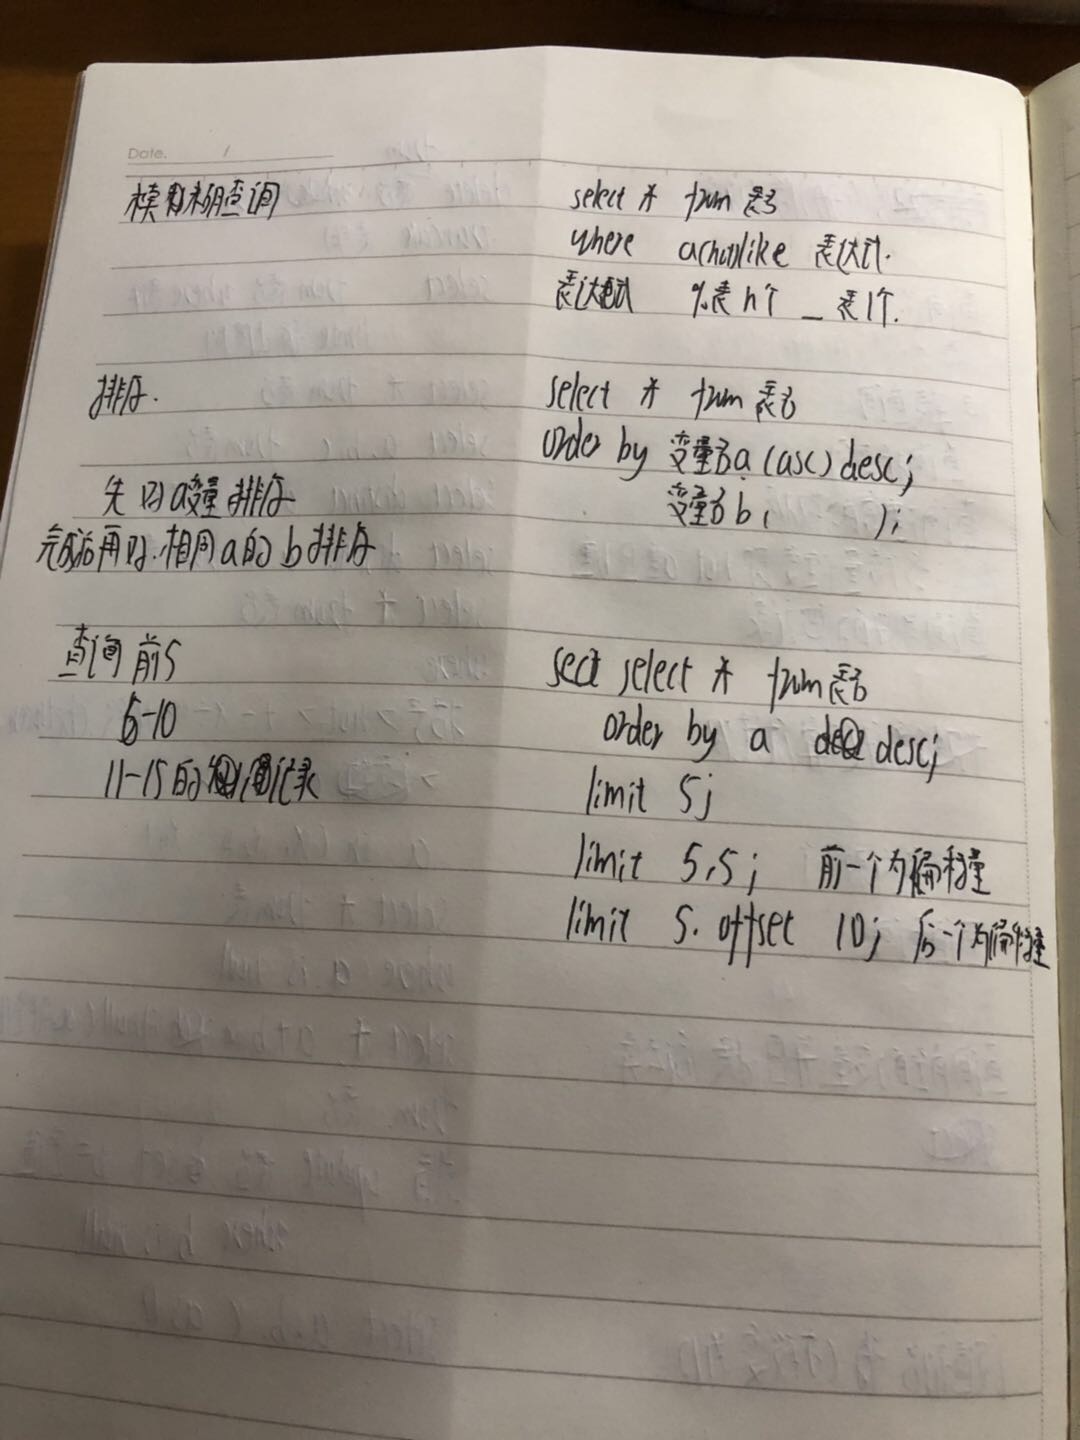 Date. /
模糊查询
select * from 表名
where a(not)like 表达式.
表达式 %表n个 _表1个.
排序.
select * from 表名
order by 变量名a (asc) desc;
先以a变量排序
变量名b ( );
完成后再以相同a的b排序
查询前5
select * from 表名
6-10
order by a desc;
11-15的记录
limit 5;
limit 5,5; 前一个为偏移量
limit 5. offset 10; 后一个为偏移量